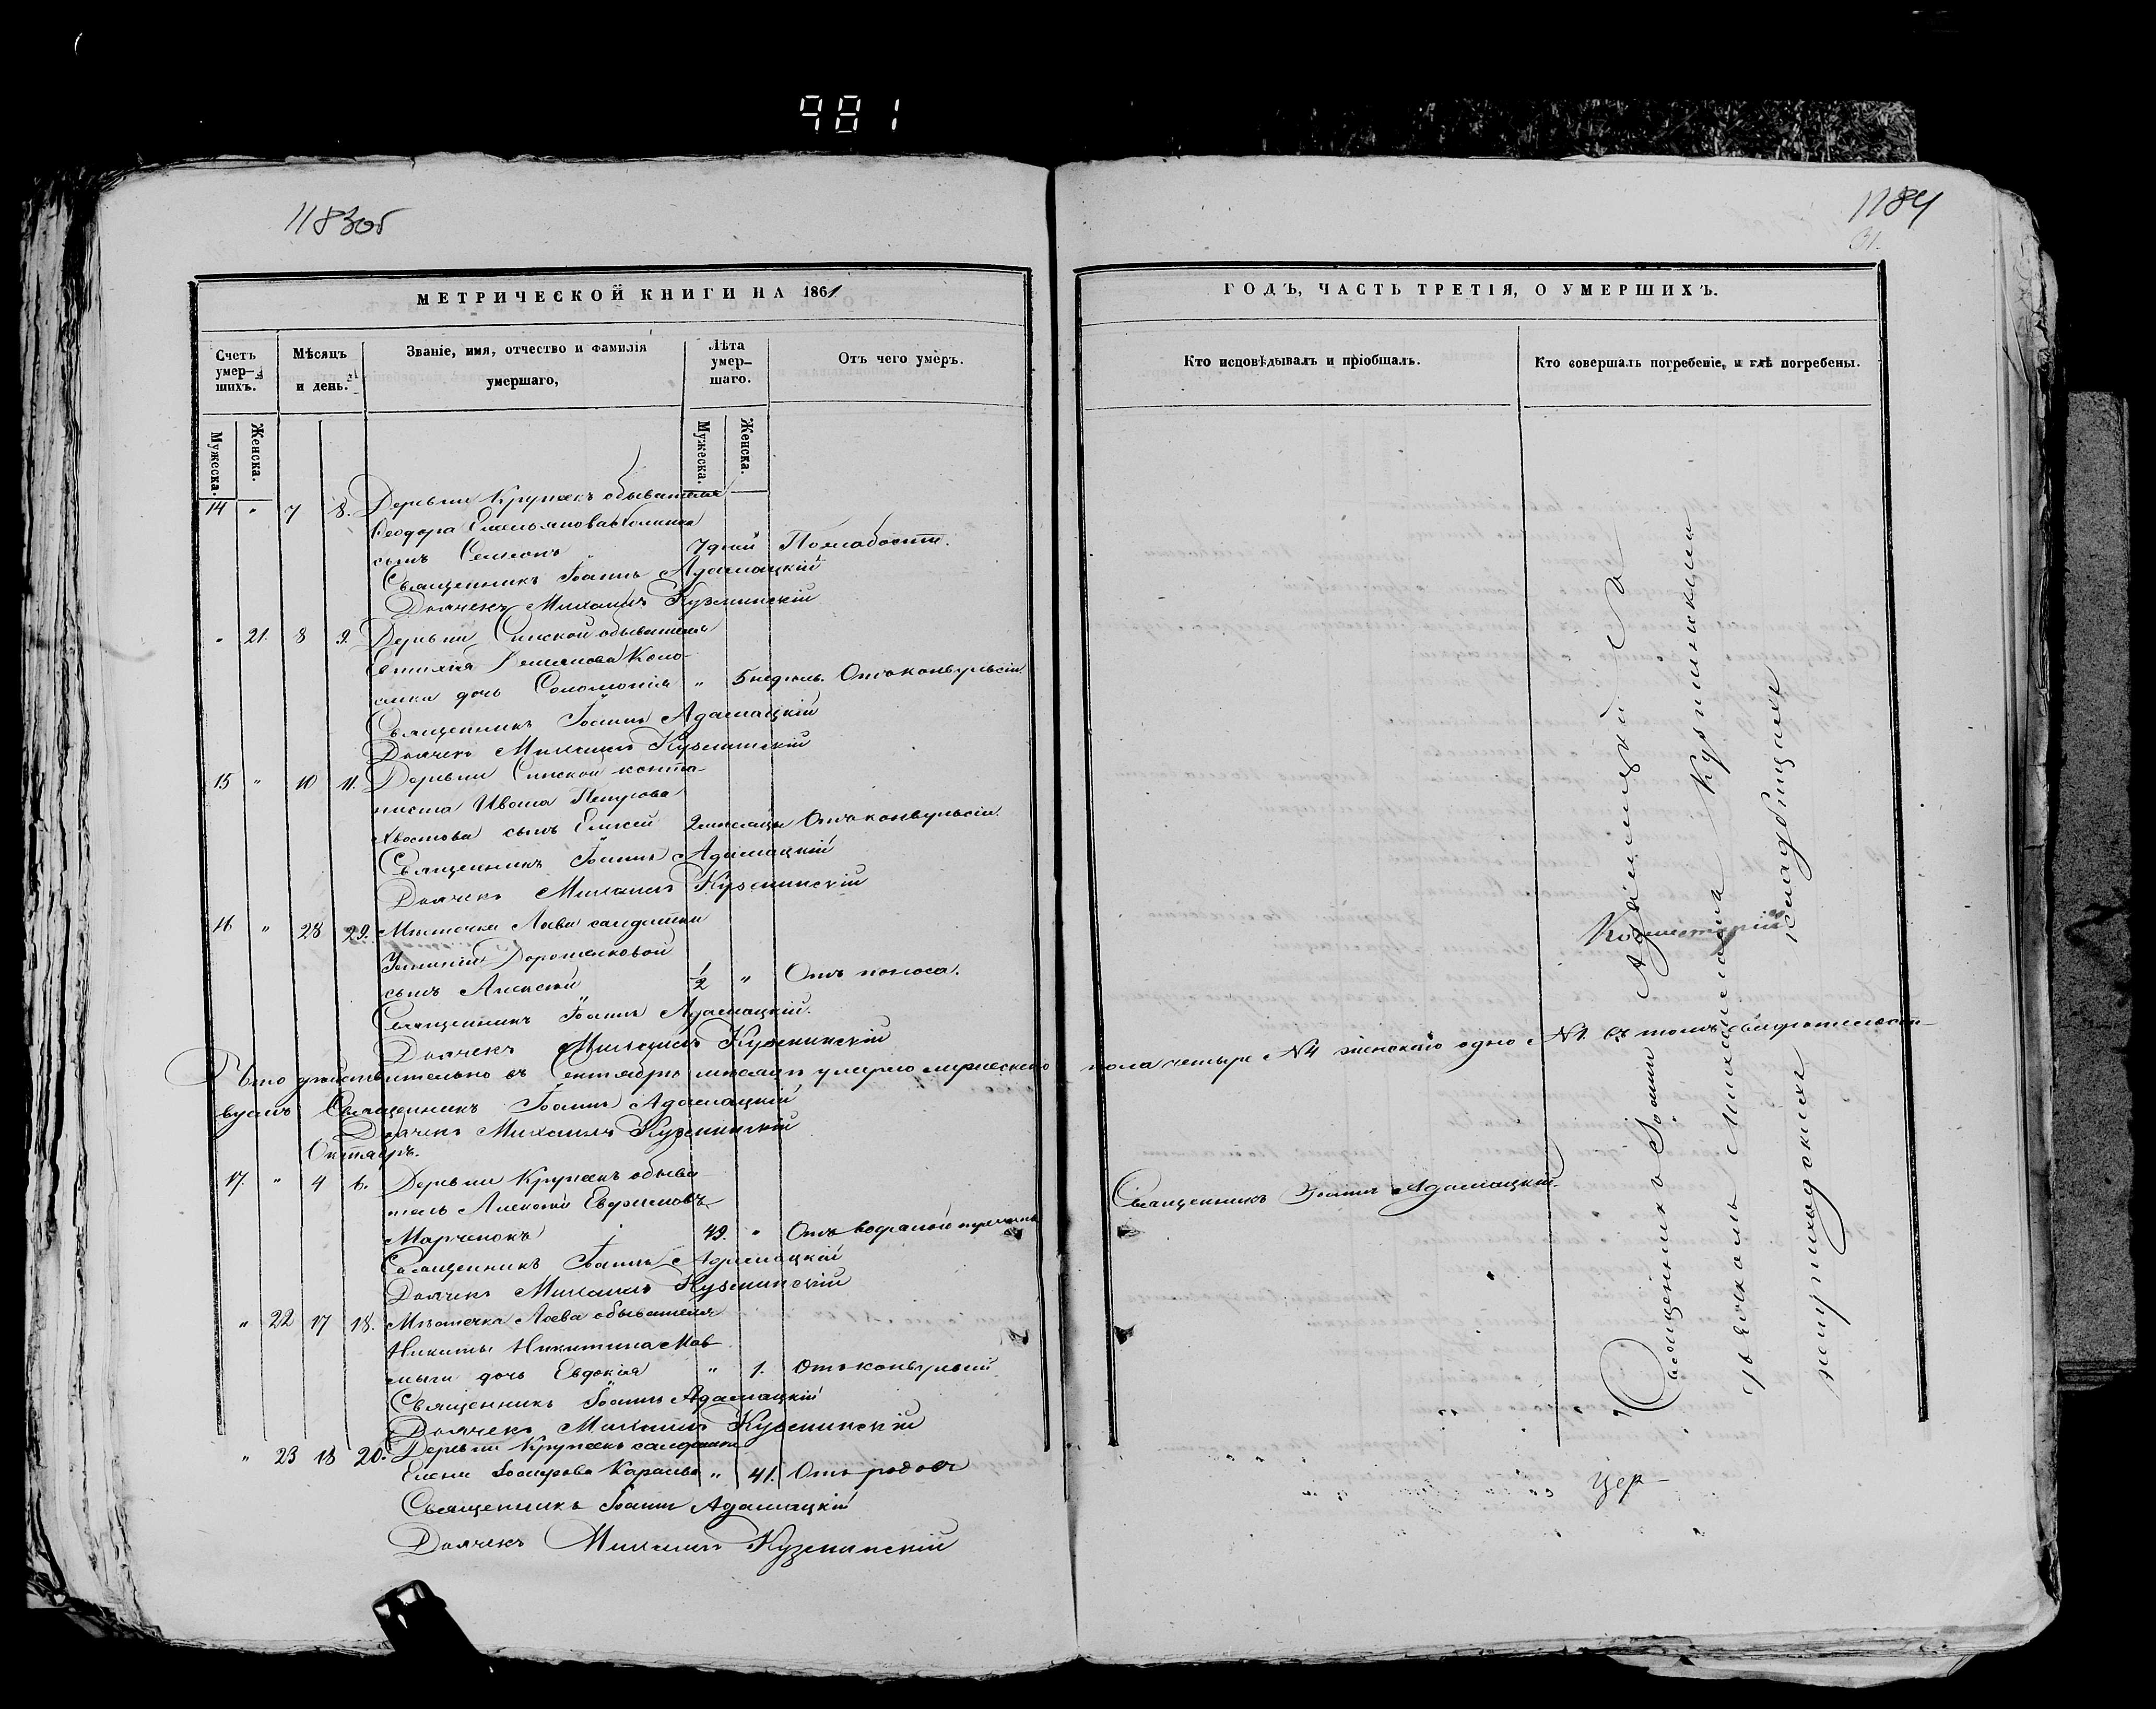 981
1183об
1184
31.
МЕТРИЧЕСКОЙ КНИГИ НА 1861
Счетъ умер-шихъ.
Мѣсяцъ и день.
Званіе, имя, отчество и фамилія умершаго,
Лѣта умер-шаго.
Отъ чего умеръ.
Мужеска.
Женска.
Мужеска.
Женска.
14 " 7 8. Деревни Крупекъ обывателя
Ѳеодора Емельянова
сынъ Семионъ 7 дней По слабости.
Священникъ Іоаннъ Адамацкій
Дьячекъ Михаилъ Кузминскій
" 21. 8 9. Деревни Синской обывателя
Евтихія Демянова Коло-
дочь Соломонія " 5 недѣль. Отъ конвульсіи.
Священникъ Іоаннъ Адамацкій
Дьячекъ Михаилъ Кузминскій
15 " 10 11. Деревни Синской
Ивана Петрова
Хвостова сынъ Елисей 2 мѣсяца Отъ конвульсіи.
Священникъ Іоаннъ Адамацкій
Дьячекъ Михаилъ Кузминскій
16 " 28 29. Мѣстечка Лоева солдатки
Дорошенковой
сынъ Алексѣй 1/2 " Отъ поноса.
Священникъ Іоаннъ Адамацкій.
Дьячекъ Михаилъ Кузминскій
Что дѣйствительно въ Сентябрѣ мѣсяцѣ умерло мужескаго пола четыре №4 женскаго одно №1. въ томъ свидѣтельст-
вуемъ Священникъ Іоаннъ Адамацкій
Дьячекъ Михаилъ Кузминскій
Октябрь.
17. " 4 6. Деревни Крупекъ обыва-
тель Алексѣй Евфимовъ
Марченокъ 49. " Отъ водяной
Священникъ Іоаннъ Адамацкій
Дьячекъ Михаилъ Кузминскій
" 22 17 18. Мѣстечка Лоева обывателя
Никиты Никитина
дочь Евдокія " 1. Отъ конвульсій
Священникъ Іоаннъ Адамацкій
Дьячекъ Михаилъ Кузминскій
" 23 18 20. Деревни Крупекъ солдатка
Елена " 41. Отъ родовъ
Священникъ Іоаннъ Адамацкій
Дьячекъ Михаилъ Кузминскій
ГОДЪ, ЧАСТЬ ТРЕТІЯ, О УМЕРШИХЪ.
Кто исповѣдывалъ и пріобщалъ.
Кто совершалъ погребеніе, и гдѣ погребены.
Священникъ Іоаннъ Адамацкій.
Священникъ Іоаннъ Адамацкій съ
дьячкомъ Михаиломъ Кузминскимъ
на приходскомъ кладбищѣ
Цер-